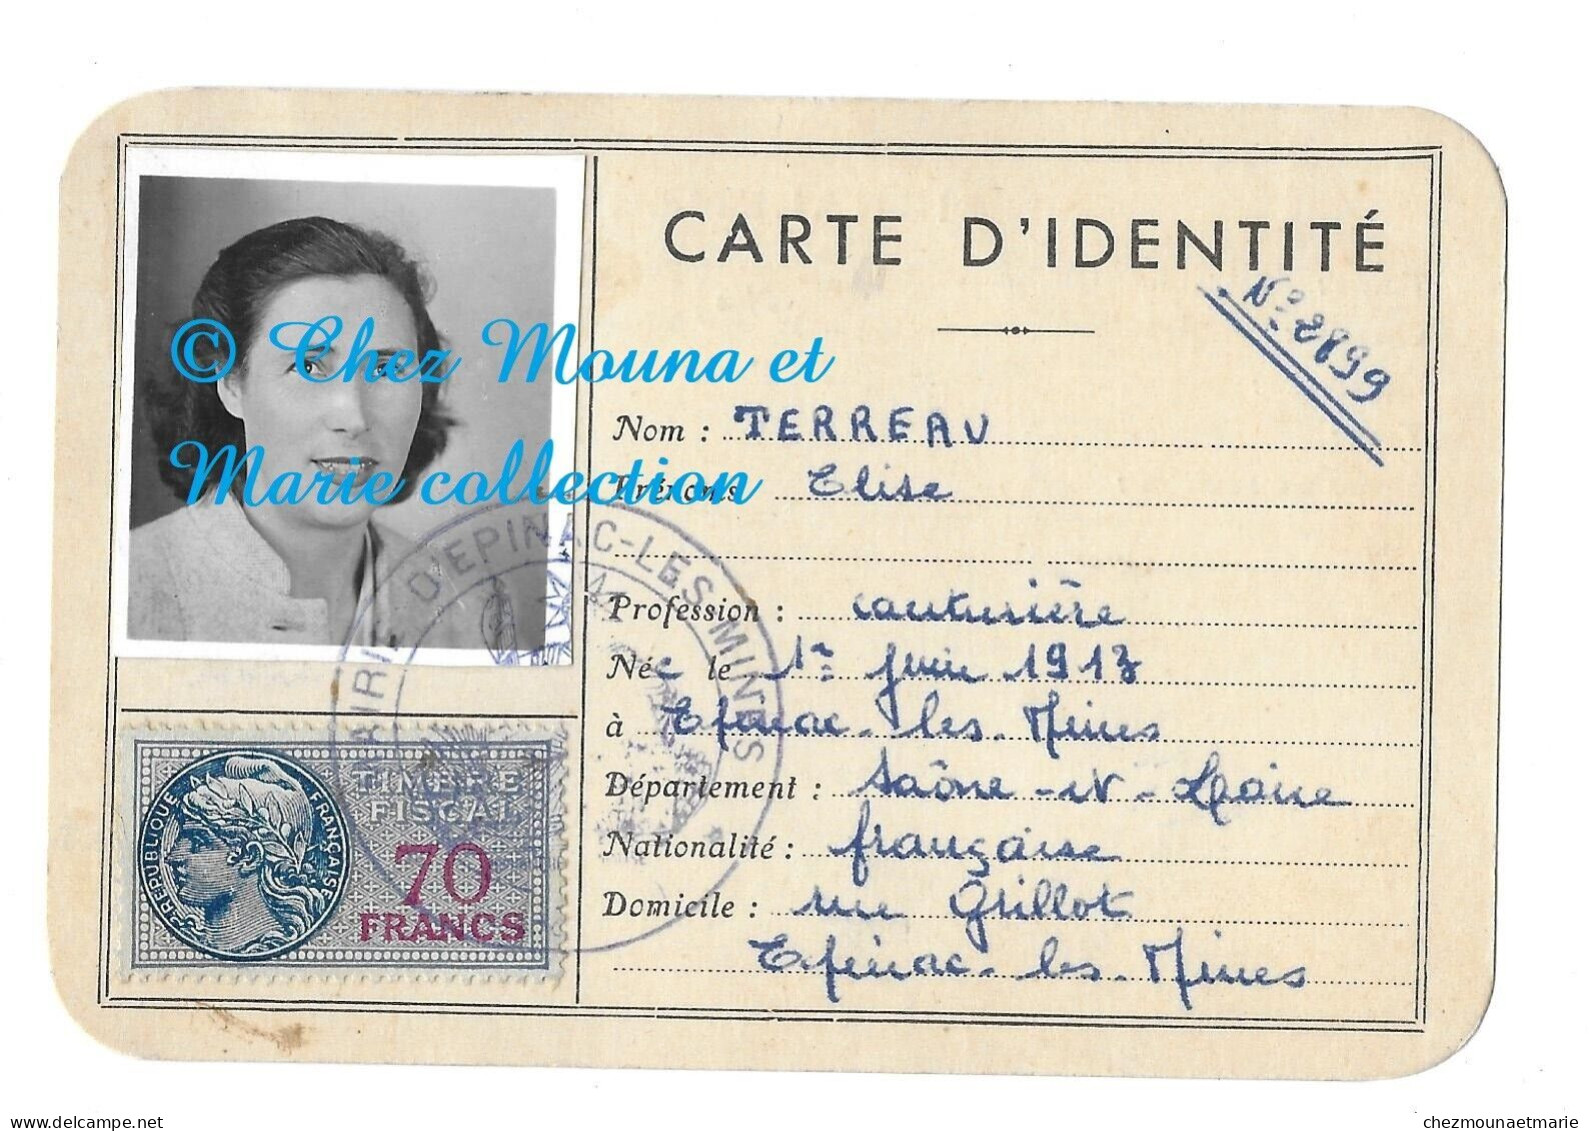 CARTE D'IDENTITÉ
N° 2899
© Chez Mouna et
Marie collection
Nom : TERREAU
Prénoms Elise
Profession : couturière
Née le 1er juin 1913
à Epinac-les-Mines
Département : Saône-et-Loire
Nationalité : française
Domicile : rue Grillot
Epinac-les-Mines
MAIRIE D'EPINAC-LES-MINES
TIMBRE
FISCAL
70
FRANCS
REPUBLIQUE FRANÇAISE
www.delcampe.net
chezmounaetmarie